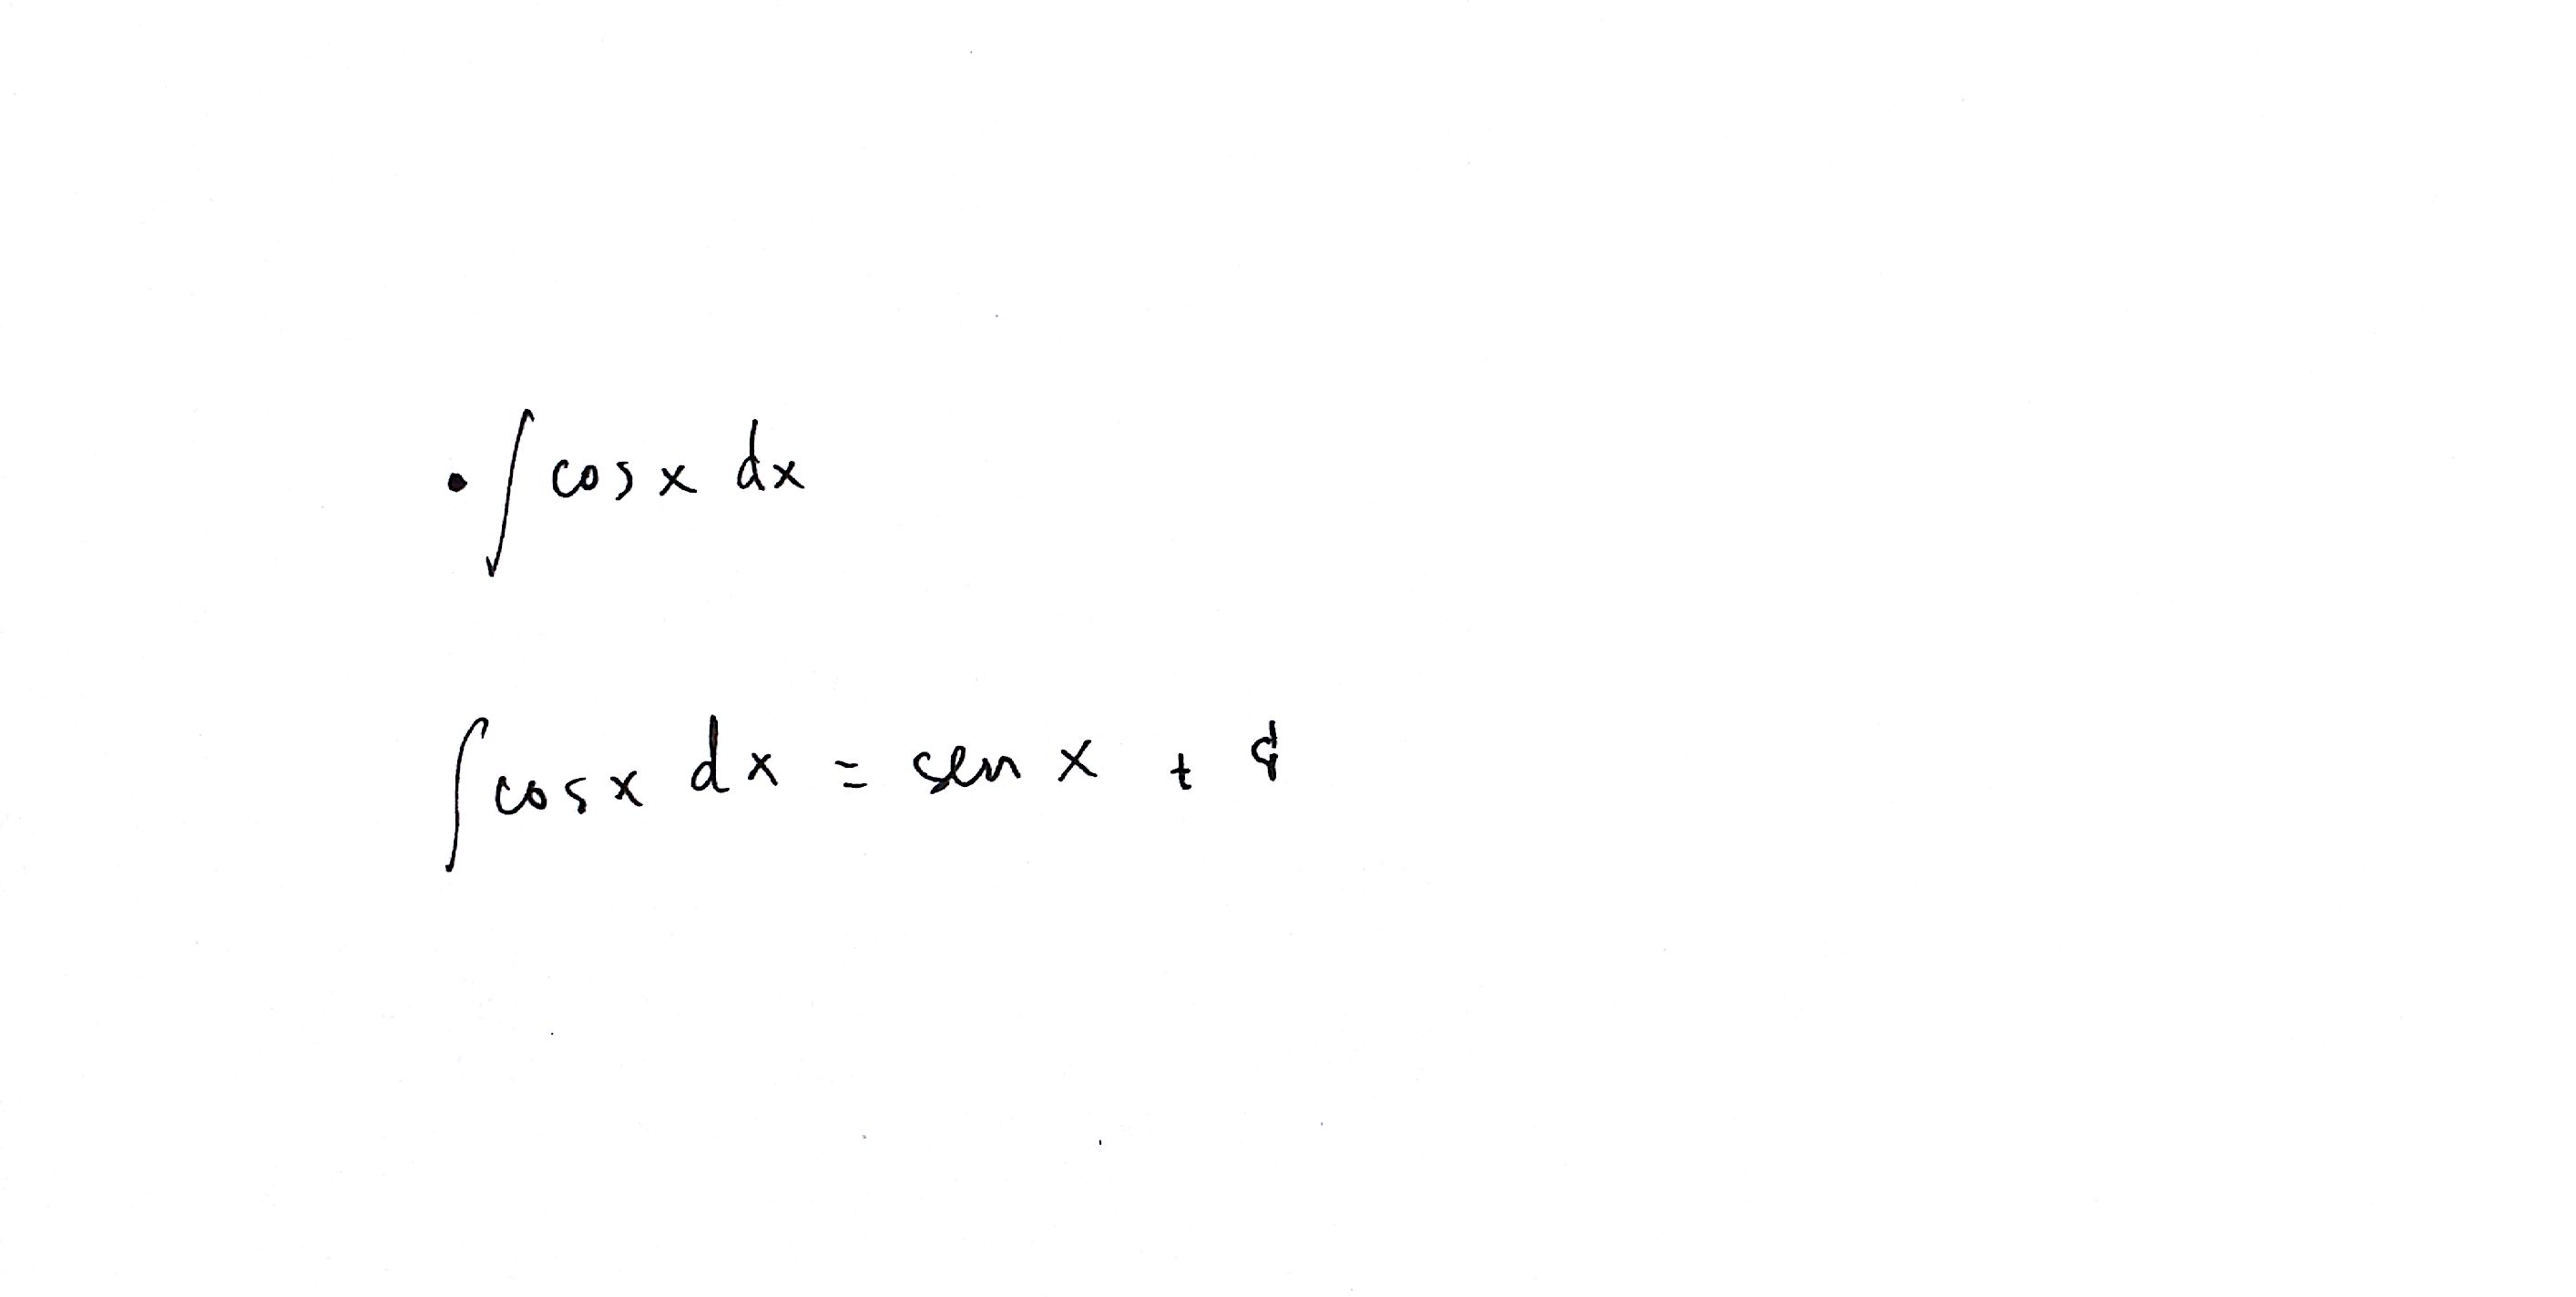 • ∫ cos x dx
∫ cos x dx = sen x + ¢